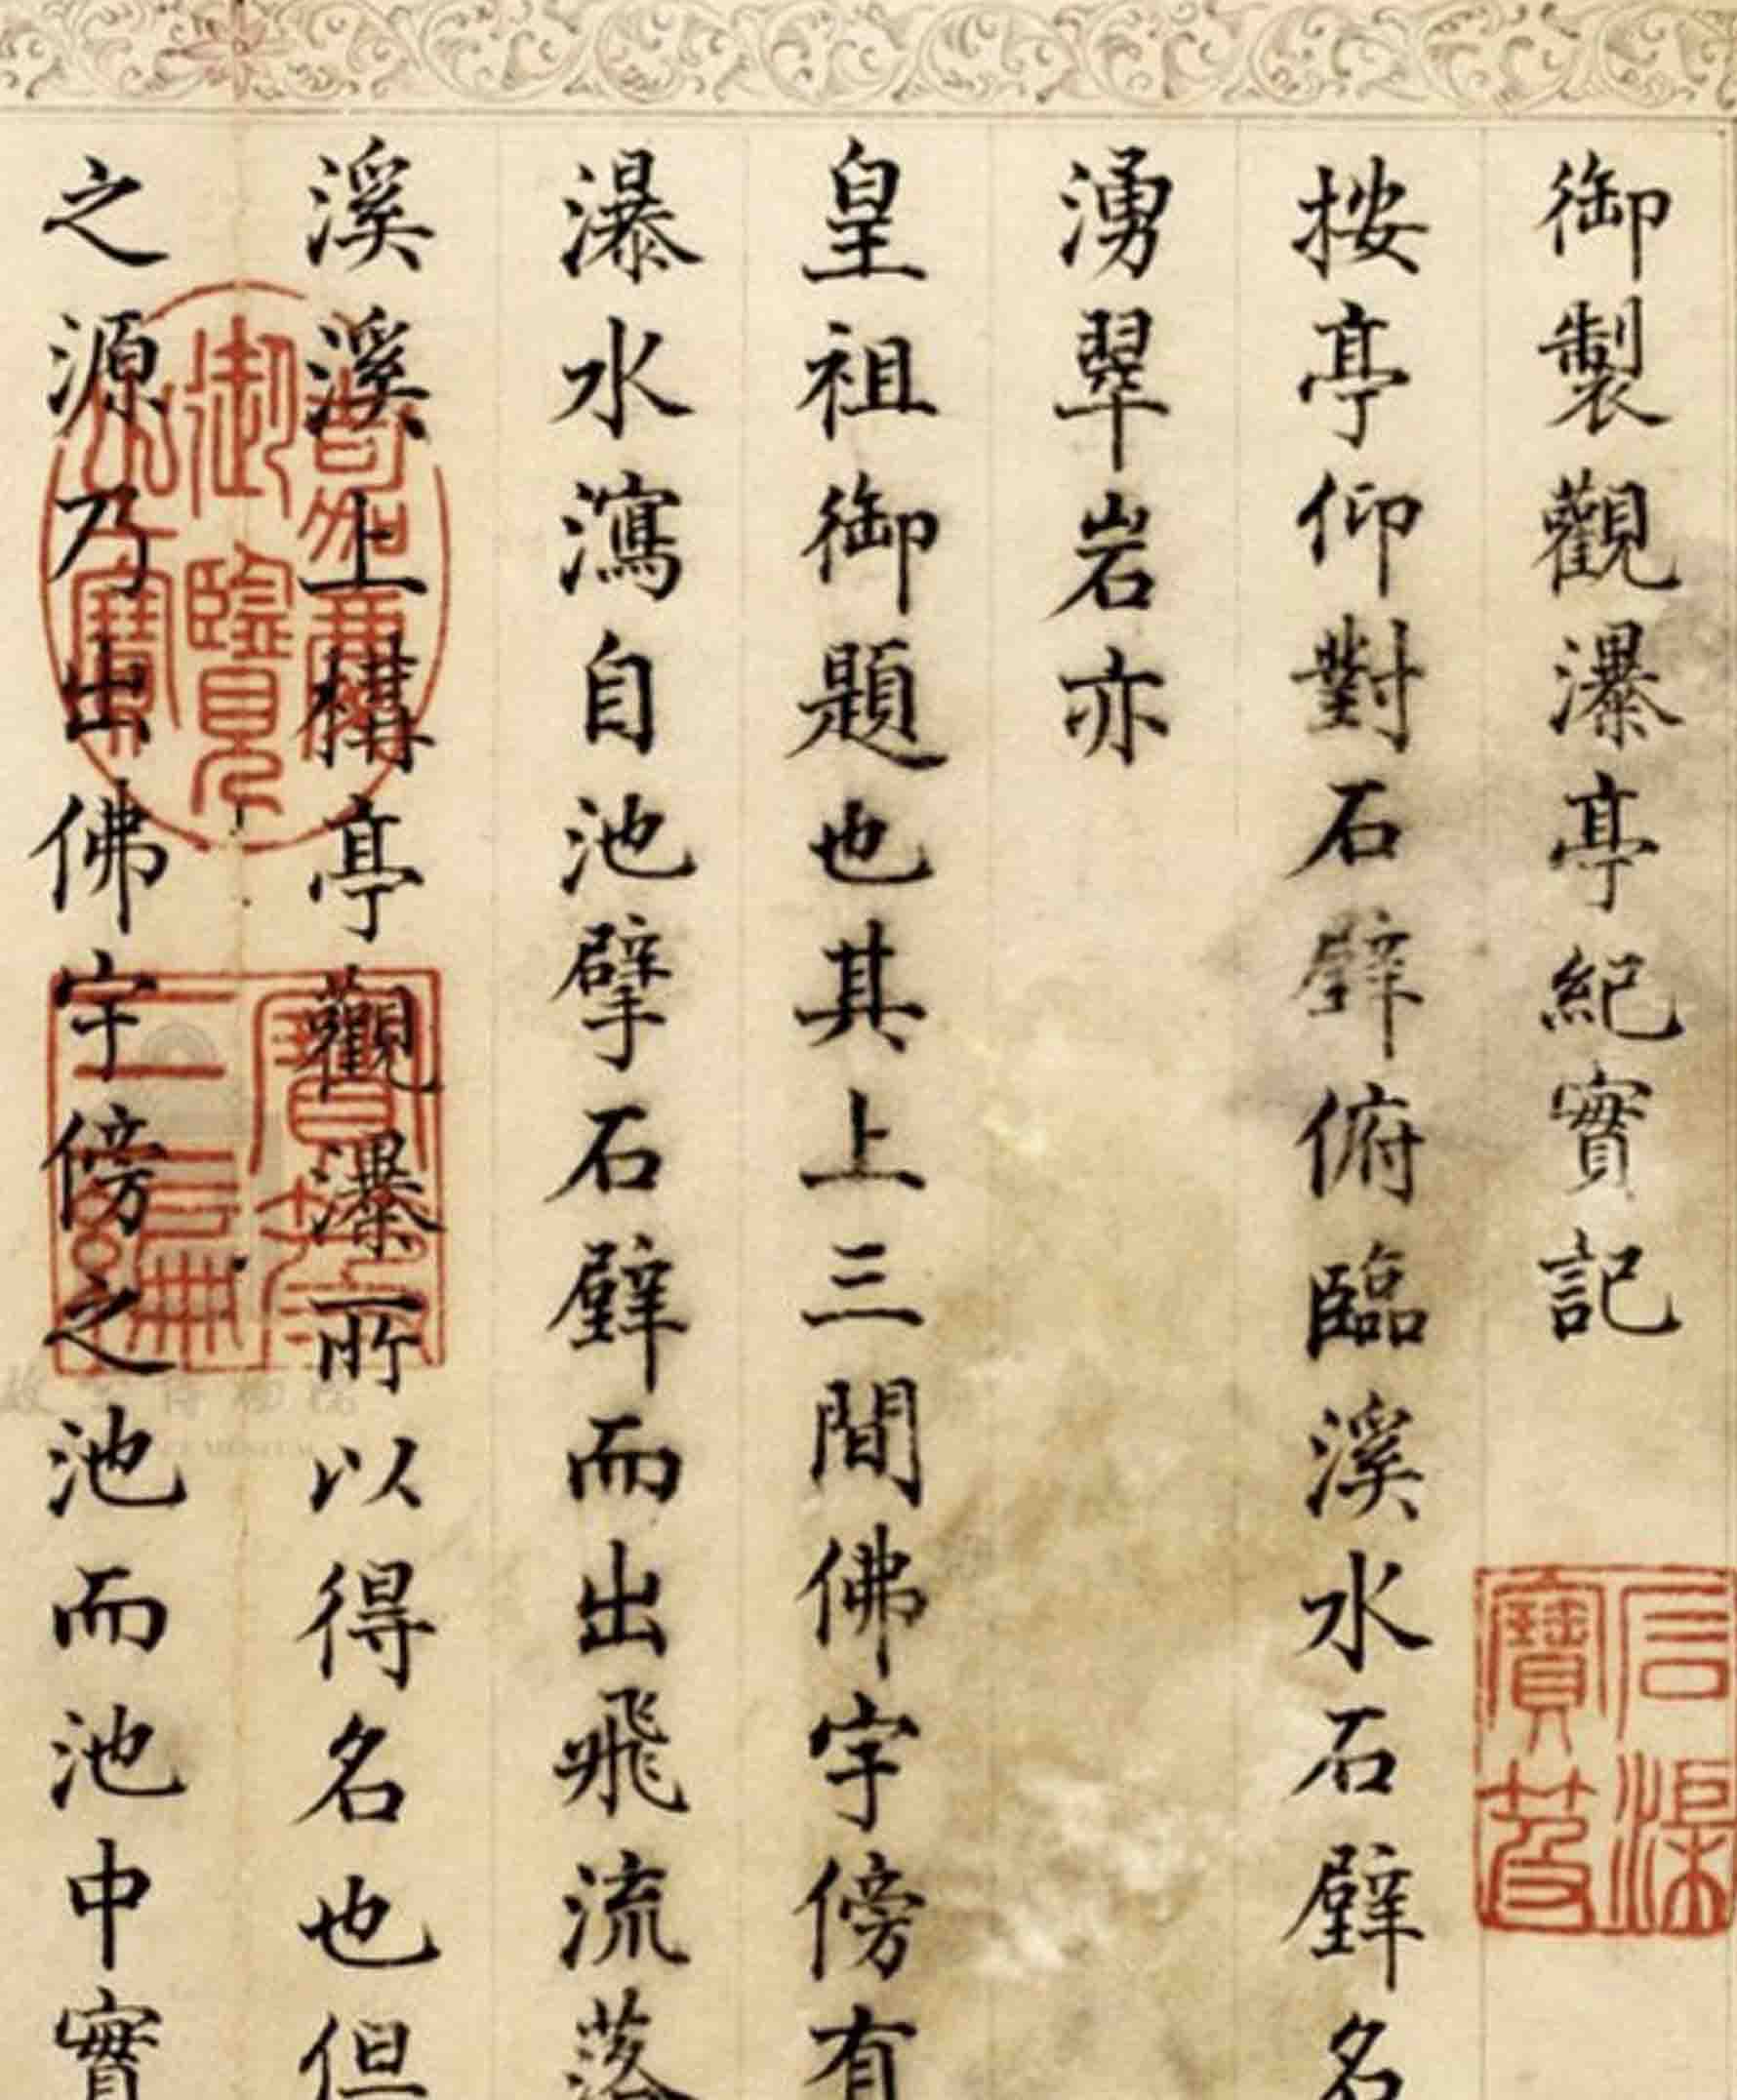 御製觀瀑亭紀實記
按亭仰對石壁俯臨溪水石壁名
湧翠岩亦
皇祖御題也其上三間佛宇傍有
瀑水瀉自池擘石壁而出飛流落
溪溪上構亭觀瀑所以得名也但
之源乃出佛宇傍之池而池中實
嘉慶御覽之寶
寶笈三編